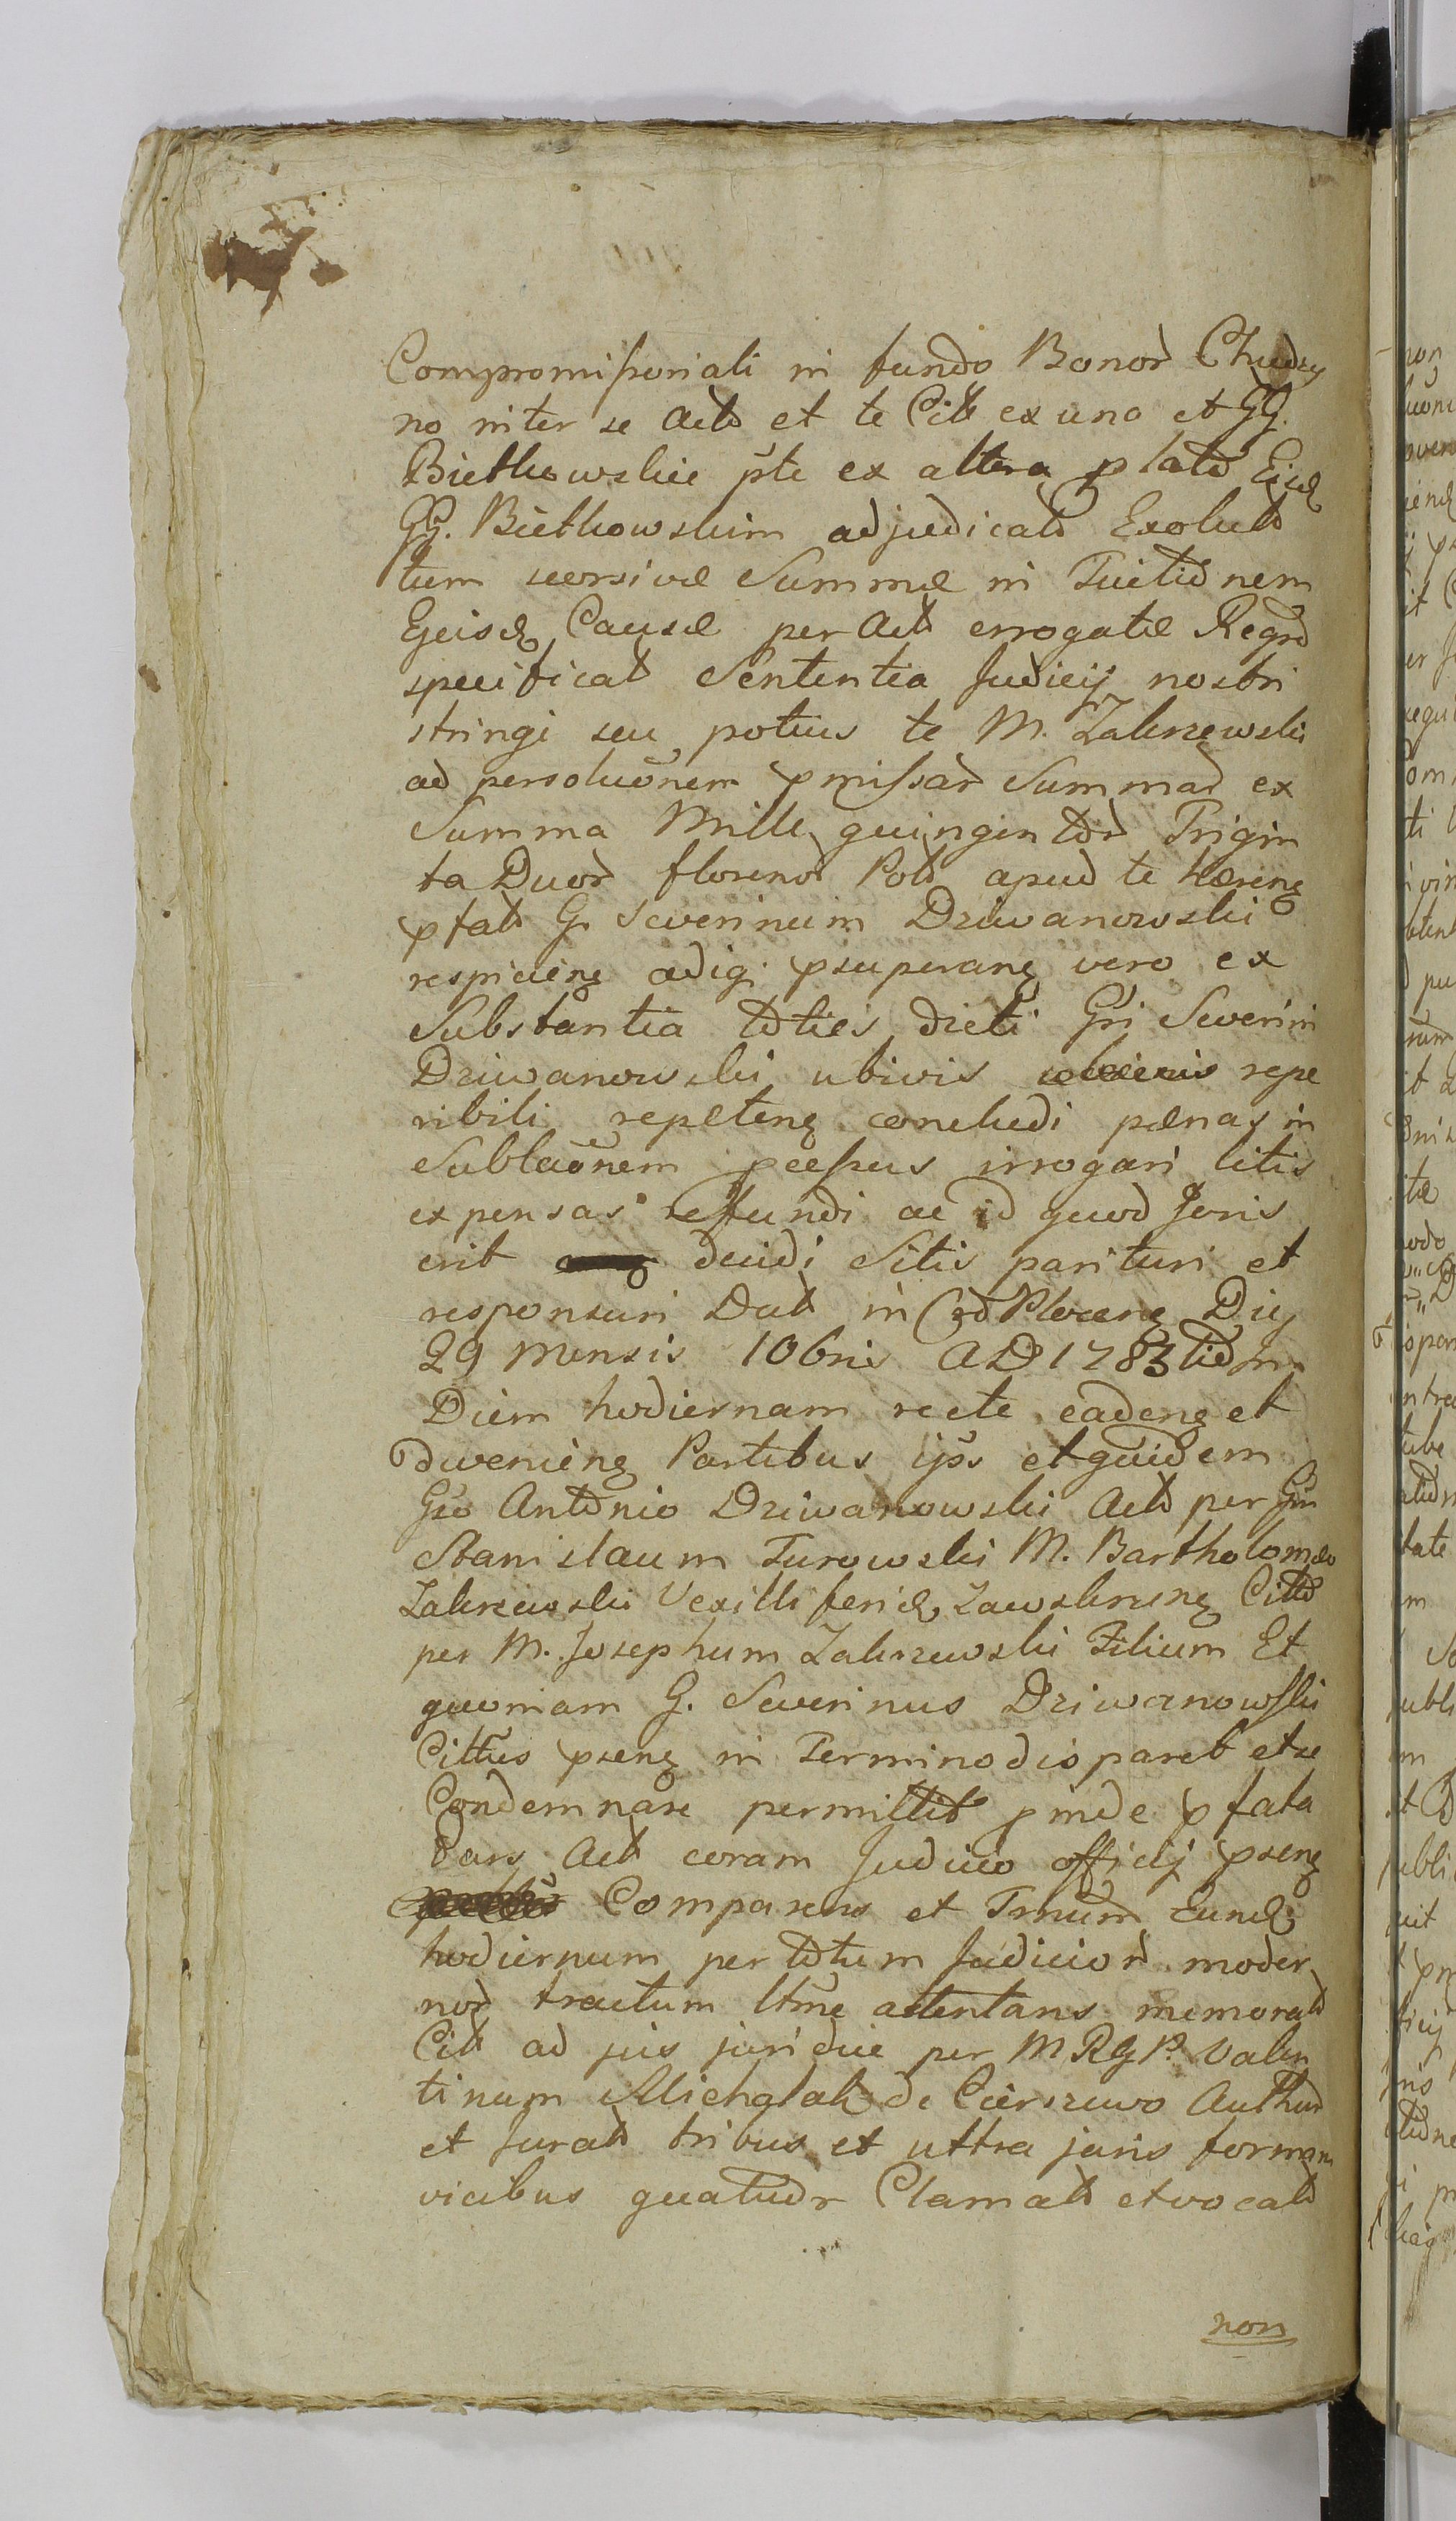 Compromissoriali in fundo Bonor Chudzy
no inter se Acto et te Citt ex uno et GG.
Bietkowskie pte ex altera plato Eisd
GG. Bietkowskim adjudicato Exoluto
tum seorsivæ Summæ in Tuitionem
Ejusd Causæ per Acto errogatæ Regro
specificat Sententia Judicij nostri
stringi seu potius te M. Zakrzewski
ad persoluōnem pmissar Summar ex
Summa Mille quingentor Trigin
ta Duor florenor Pol apud te hærenę
pfato G. Severinum Dziwanowski
respicienę adigi psuperanę vero ex
Substantia toties dicti Gsi Severini
Dziwanowski ubivis repe
ribili repetenę concludi pænas in
Sublaōnem pcessus irrogari litis
expensas reffundi ac id quod Juris
erit decidi Sitis parituri et
responsuri Dat in Cрd Plocenę Die
29 Mensis 10bris AD 1783tio In
Diem hodiernam recte cadenę et
dvenienę Partibus ijs et quidem
Gso Antonio Dziwanowski Acto per Gm
Stanislaum Turowski M. Bartholomæo
Zakrzewski Vexilliferid Zawskrzenę Citto
per M. Josephum Zakrzewski Filium Et
quoniam G. Severinus Dziwanowski
Cittus psenę in Termino disparet et se
Condemnare permittit pinde pfata
Pars Act coram Judicio officij psenę
Comparens et Tmum Eund
hodiernum per totum Judicior moder
nor tractum ltme attentans memorato
Cit ad jus juridice per MRGP. Valen
tinum Michalak de Cierszewo Author
et Jurato tribus et ultra juris formam
vicibus quatuor Clamato et vocato
non